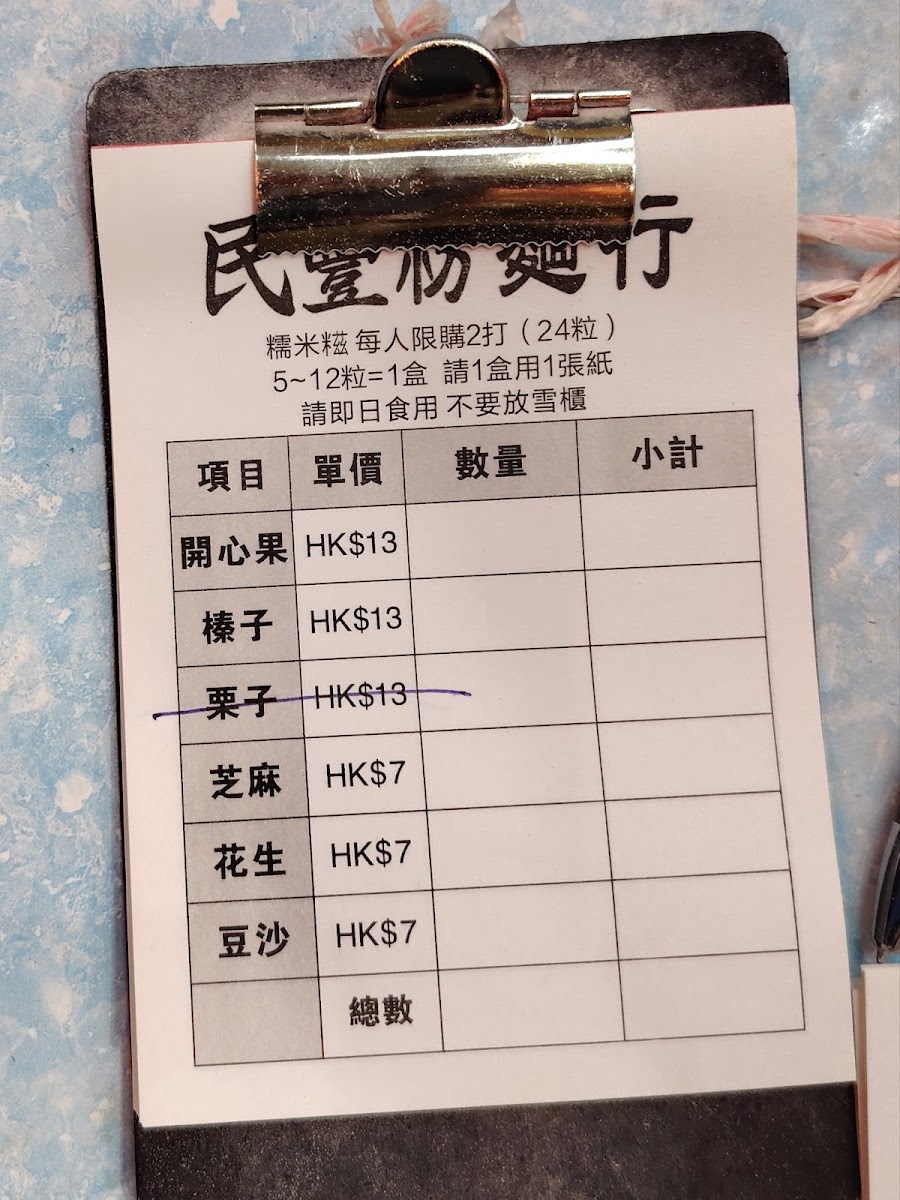 民豐粉麵行
糯米糍 每人限購2打（24粒）
5~12粒=1盒 請1盒用1張紙
請即日食用 不要放雪櫃
項目 單價 數量 小計
開心果 HK$13
榛子 HK$13
栗子 HK$13
芝麻 HK$7
花生 HK$7
豆沙 HK$7
總數